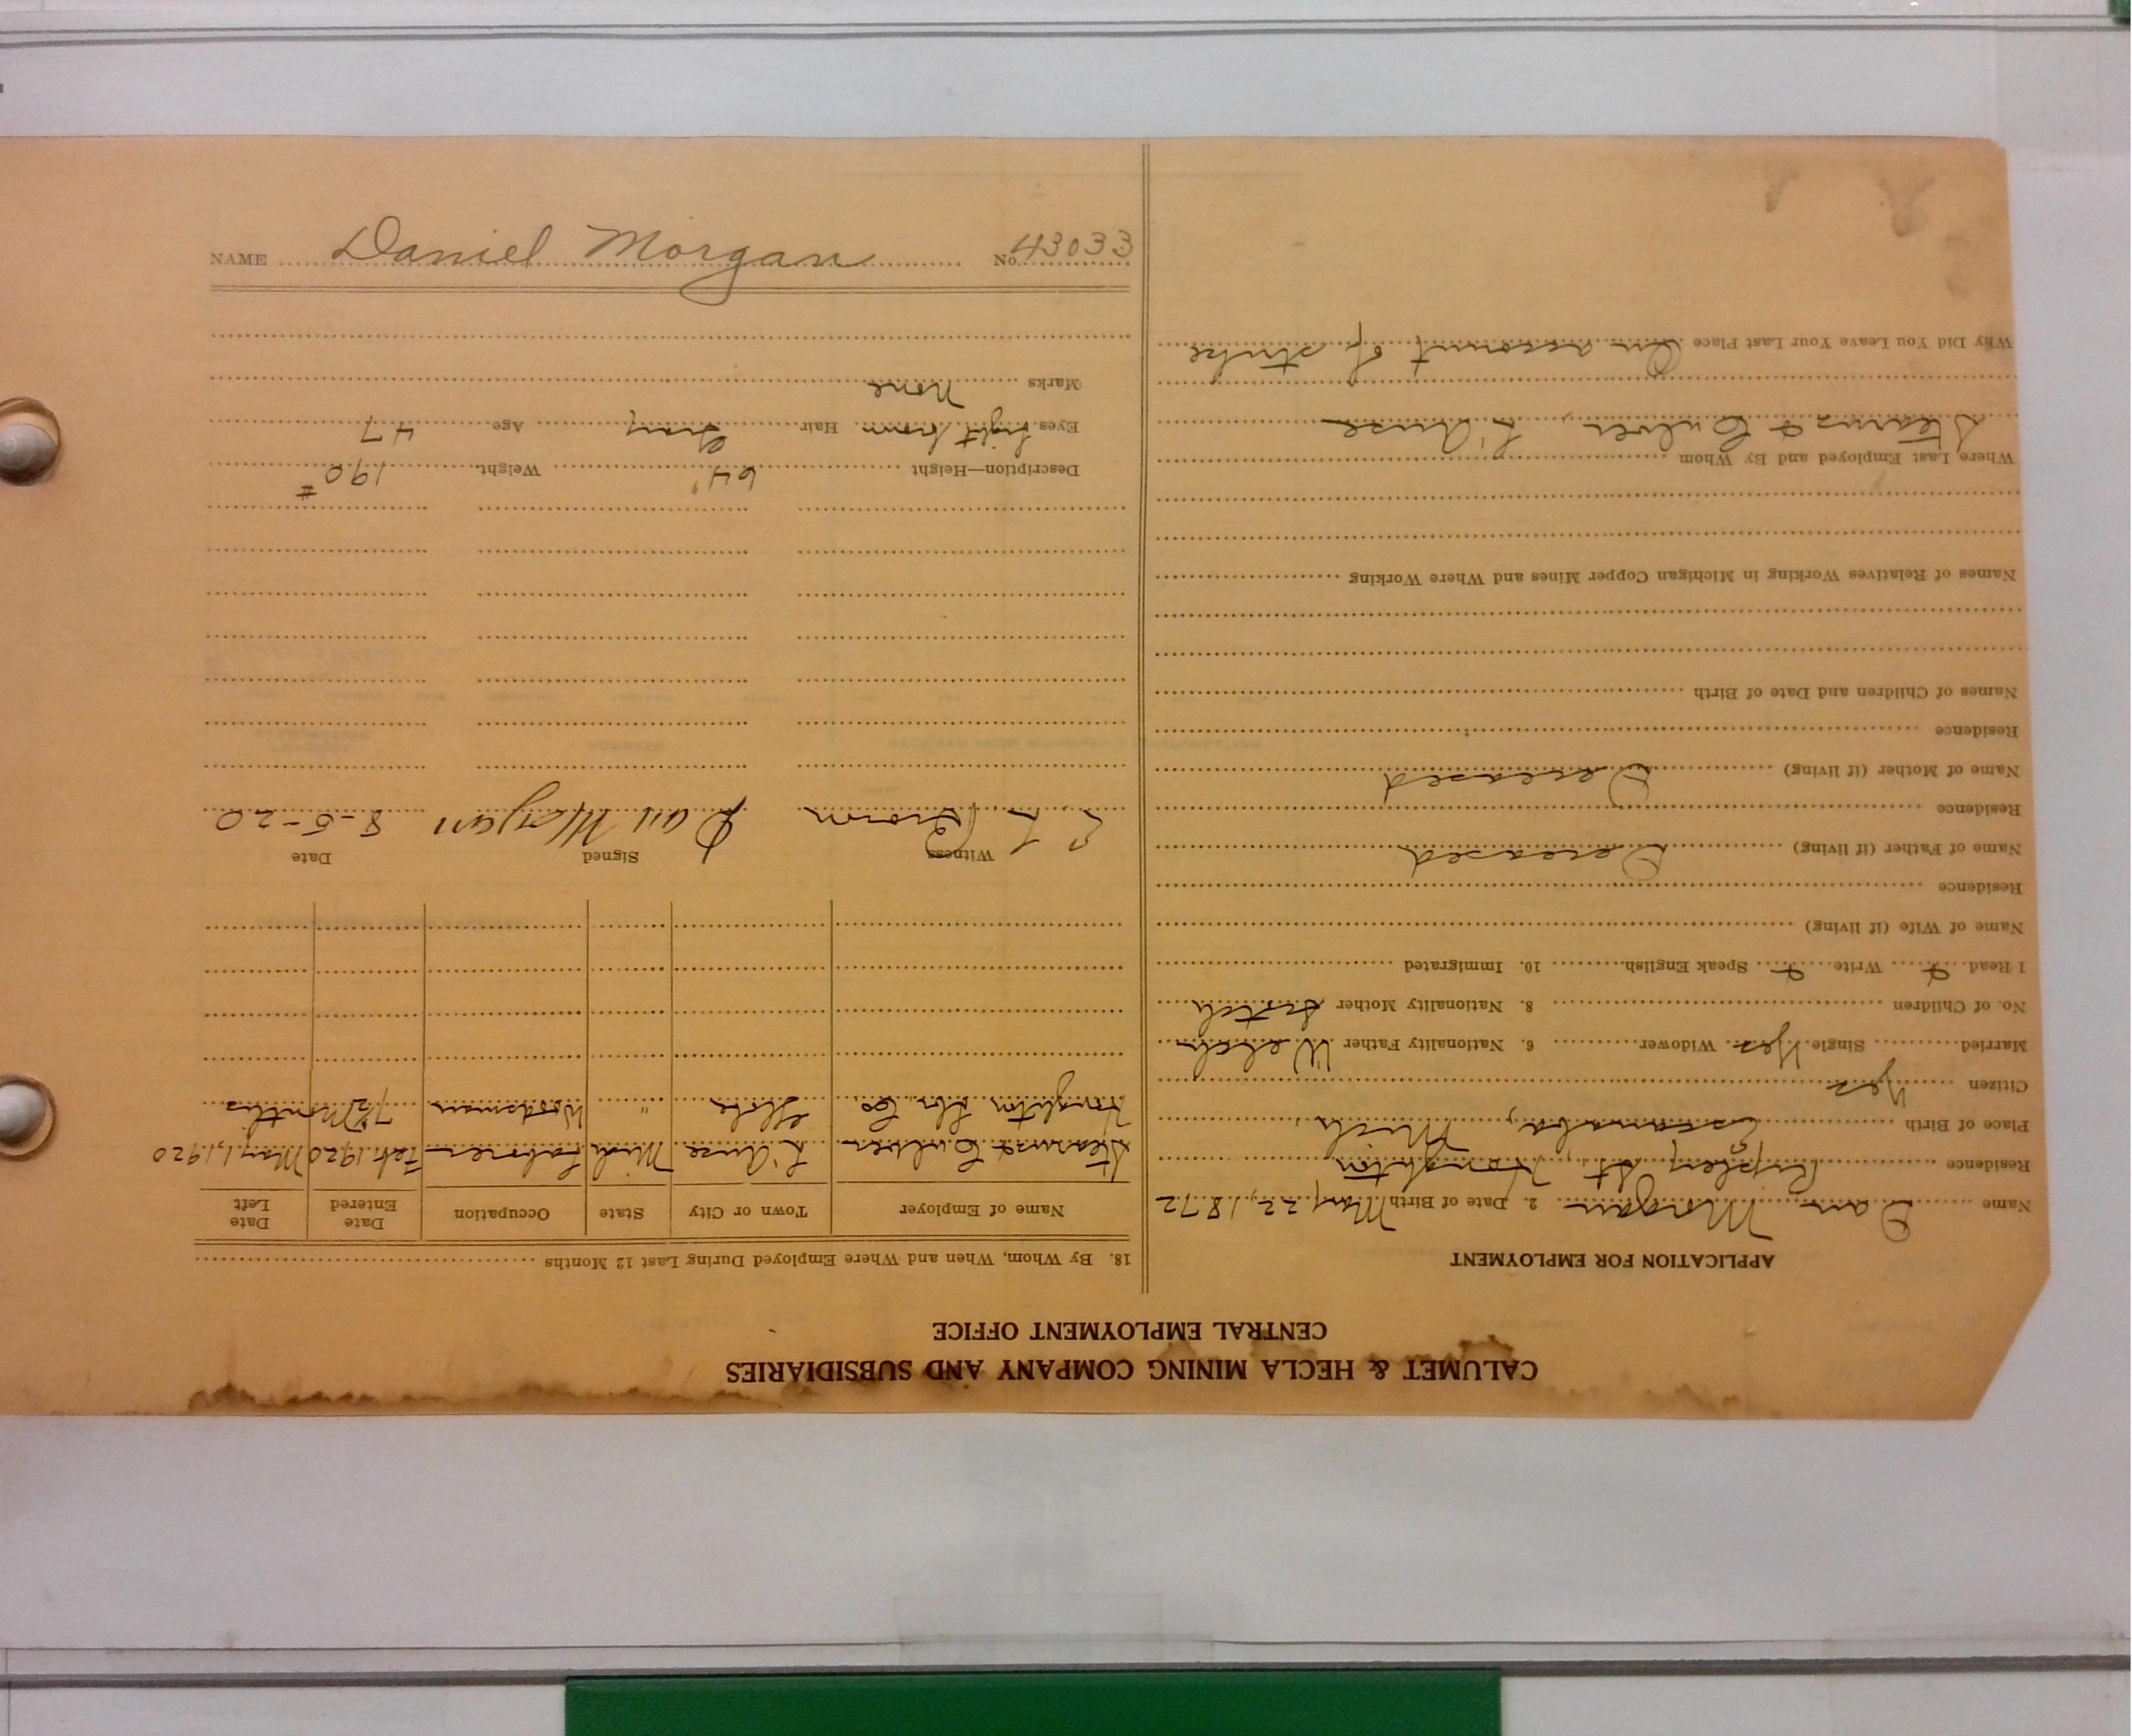 CALUMET & HECLA MINING COMPANY AND SUBSIDIARIES
CENTRAL EMPLOYMENT OFFICE
APPLICATION FOR EMPLOYMENT
Name Dan Morgan 2. Date of Birth May 22, 1872
Residence Ripley St., Houghton
Place of Birth Escanaba, Mich
Citizen Yes
Married Single Yes Widower 6. Nationality Father Welch
No. of Children 8. Nationality Mother Scotch
I Read Write Speak English 10. Immigrated
Name of Wife (if living)
Residence
Name of Father (if living) Deceased
Residence
Name of Mother (if living) Deceased
Residence
Names of Children and Date of Birth
Names of Relatives Working in Michigan Copper Mines and Where Working
Where Last Employed and By Whom
Stearns & Culver, L'Anse
Why Did You Leave Your Last Place On account of strike
18. By Whom, When and Where Employed During Last 12 Months
Name of Employer Town or City State Occupation Date Entered Date Left
Stearns & Culver L'Anse Mich Laborer Feb. 1920 May 1, 1920
Houghton Lbr. Co " Woodsman 7½ Months
Witness Signed Date
Brown Dan Morgan 8-5-20
Description—Height 64" Weight 190#
Eyes Light brown Hair Gray Age 47
Marks None
NAME Daniel Morgan No. 43033